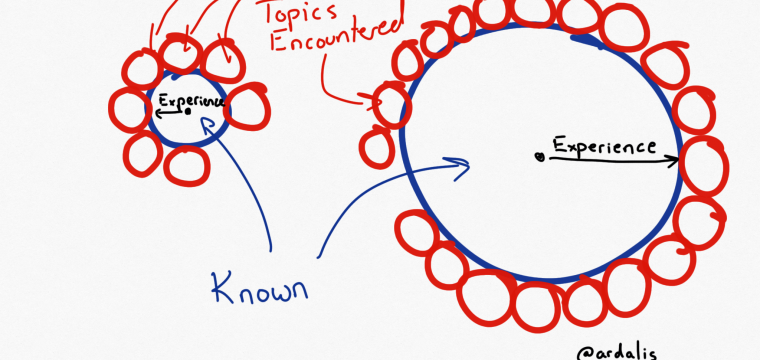 Topics
Encountered
Experience
Experience
Known
@ardalis